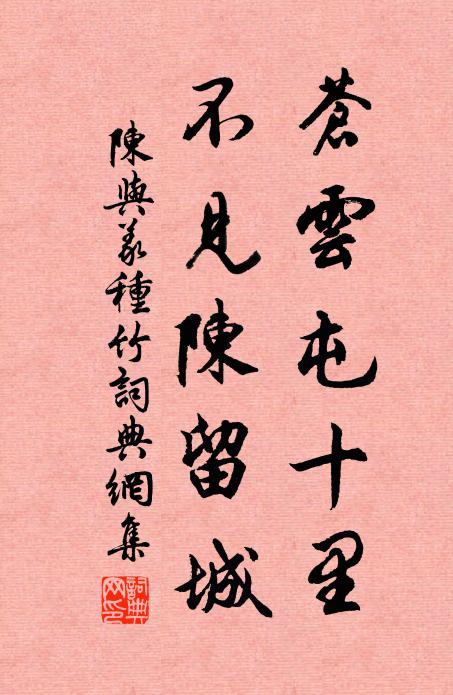 蒼雲屯十里
不見陳留城
陳與義種竹詞典網集
詞典網印